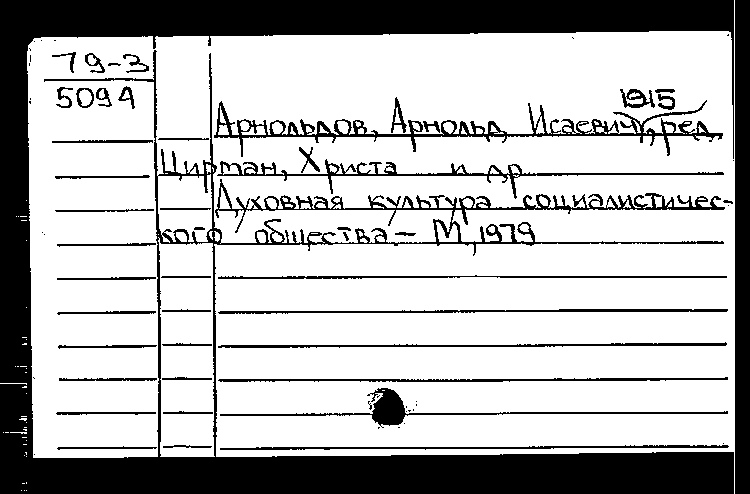 79-3
5094
1915
Арнольдов, Арнольд Исаевич, ред.
Цирман, Христа и др
Духовная культура социалистичес-
кого общества. - М, 1979